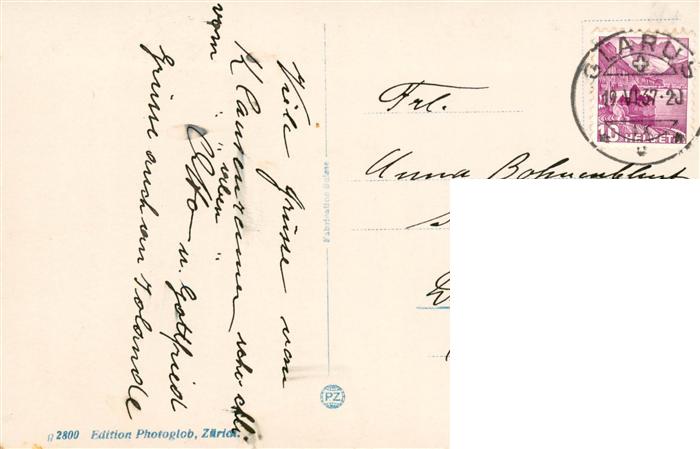 Viele Grüsse von
Klausenrenner scho chli
vom "üben"
Otto u. Gottfried
Grüsse auch an Jolande
Frl.
Anna Bohnenblust
GLARUS
19.VI.37-20
10 HELVETIA
Fabrication Suisse
PZ
g 2800 Edition Photoglob, Zürich.